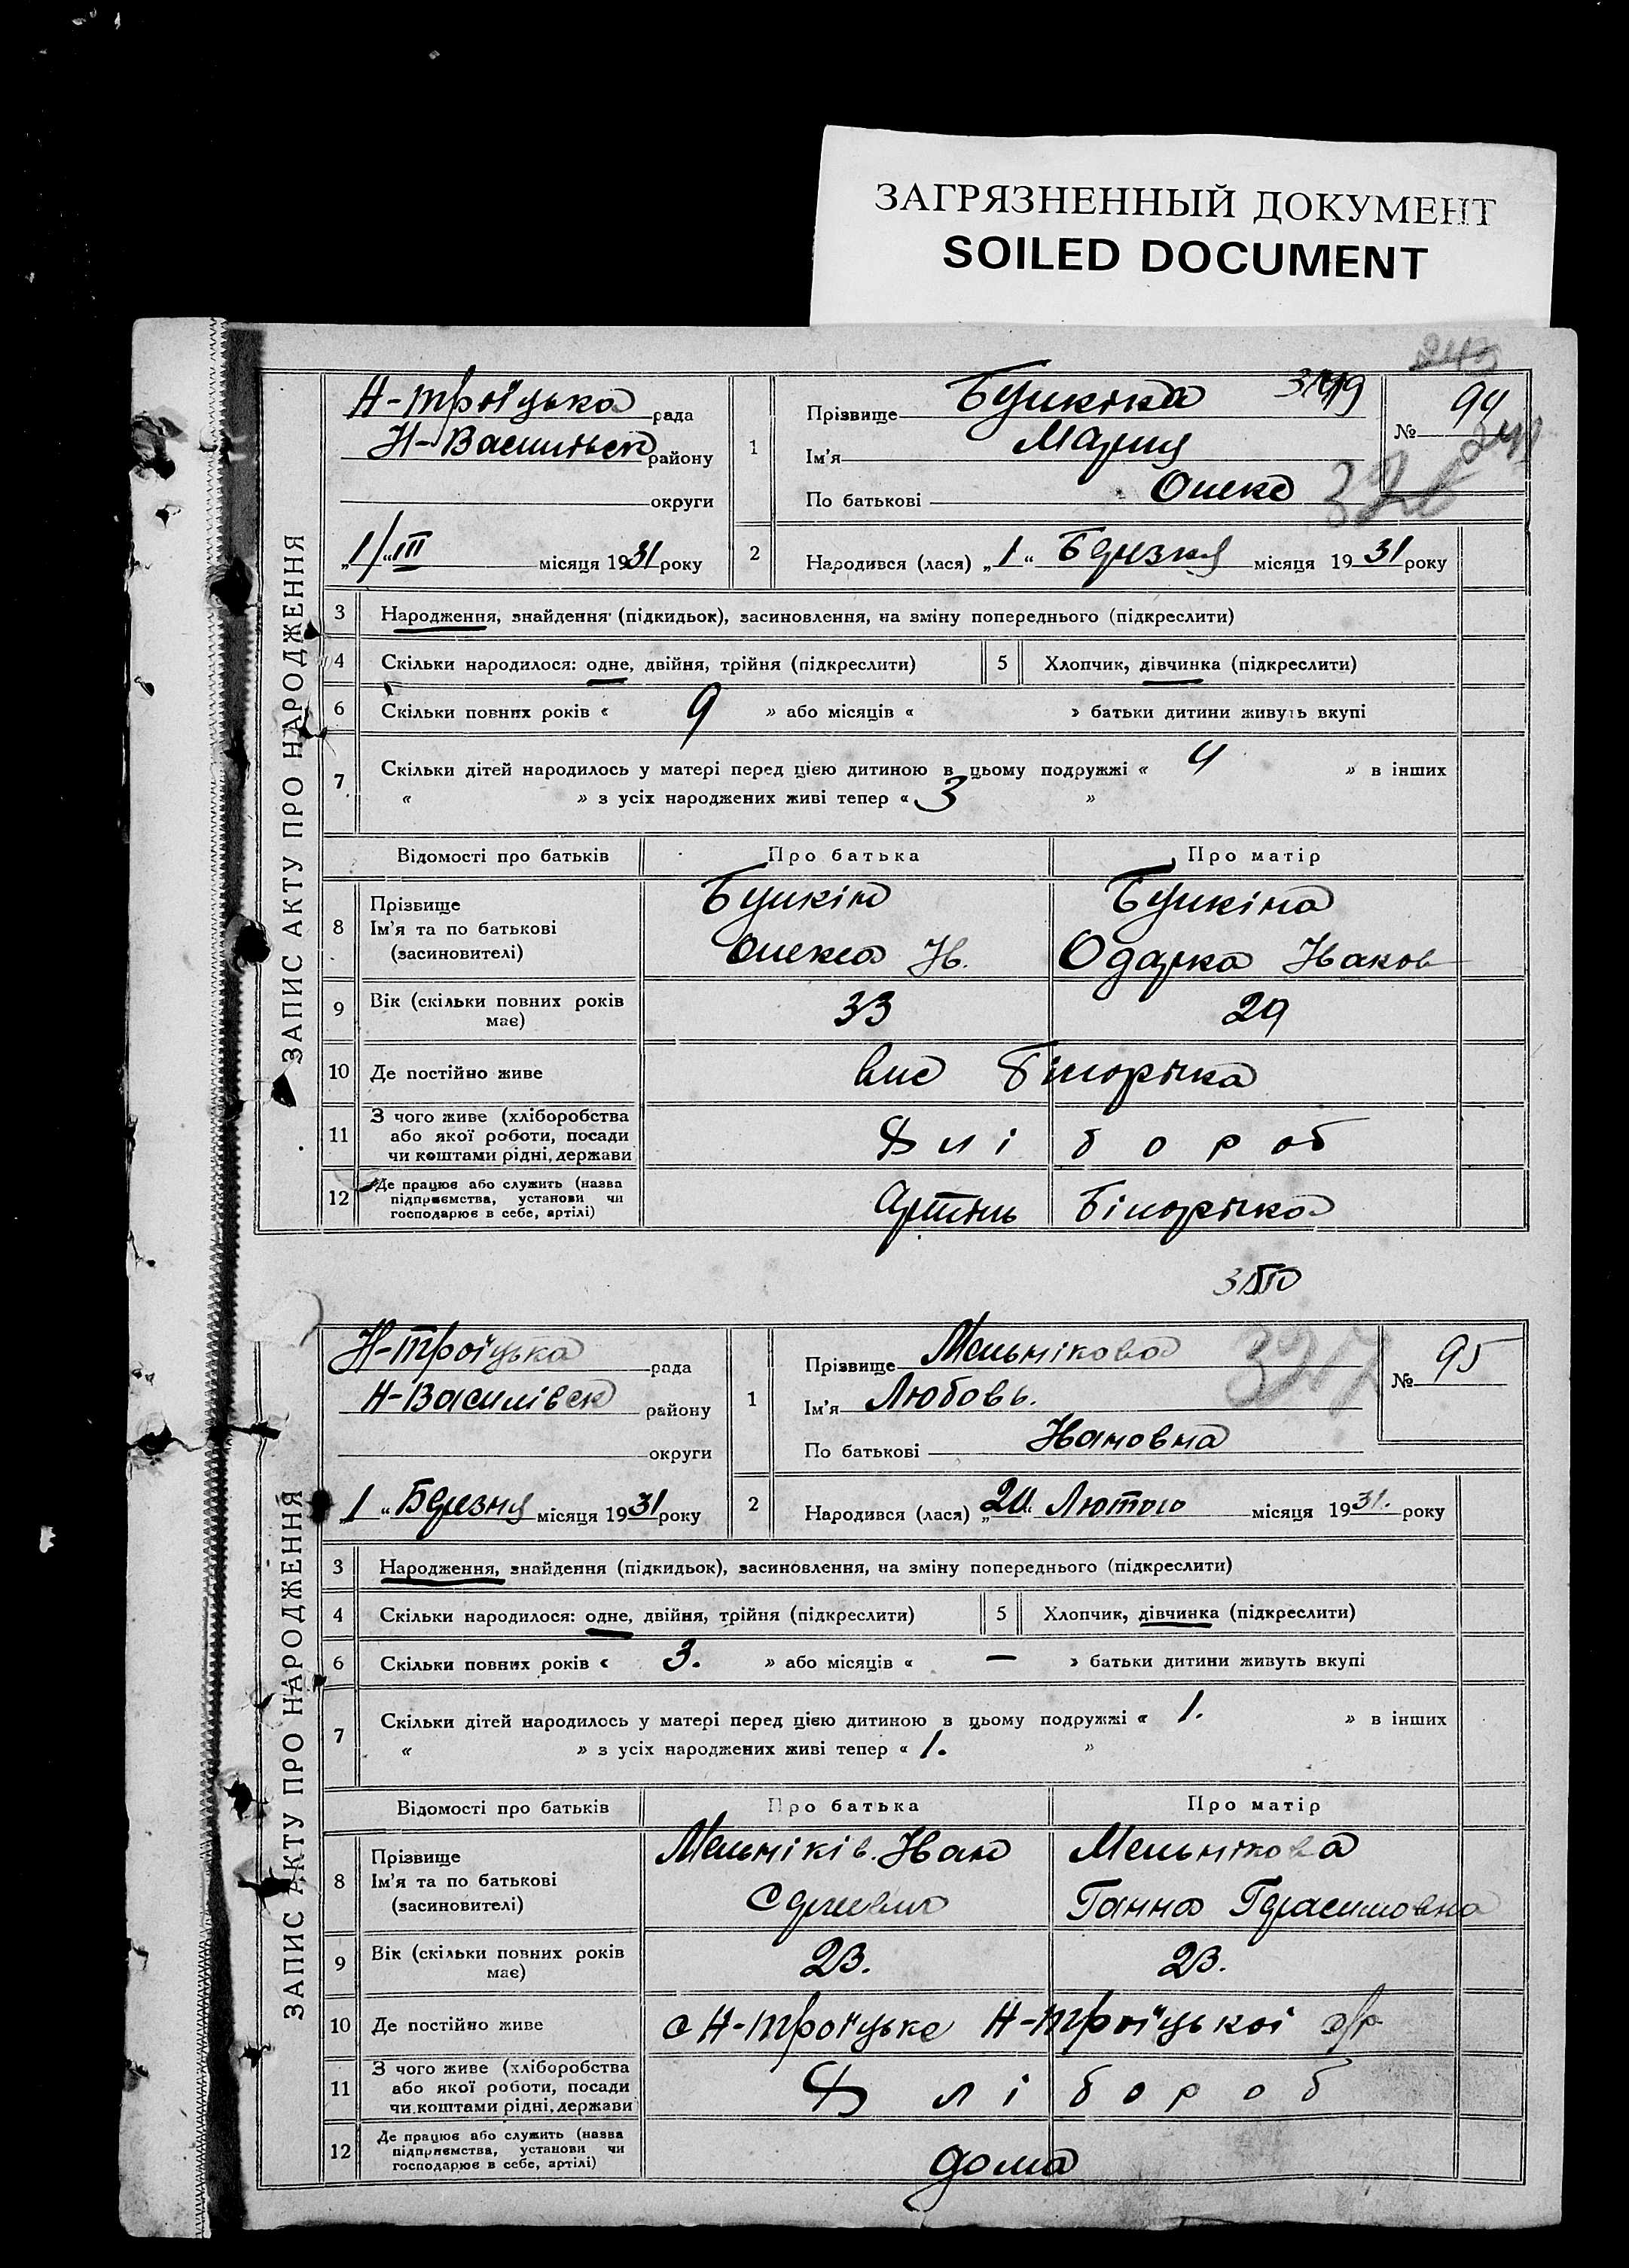 ЗАГРЯЗНЕННЫЙ ДОКУМЕНТ
SOILED DOCUMENT
ЗАПИС АКТУ ПРО НАРОДЖЕННЯ
Н-Троїцька рада
Н-Василівск району
округи
„1/“ III місяця 1931 року
1 Прізвище
Ім'я Мария
По батькові Олекс
№ 94
2 Народився (лася) „1“ Березня місяця 1931 року
3 Народження, знайдення (підкидьок), засиновлення, на зміну попереднього (підкреслити)
4 Скільки народилося: одне, двійня, трійня (підкреслити) 5 Хлопчик, дівчинка (підкреслити)
6 Скільки повних років « 9 » або місяців « » батьки дитини живуть вкупі
7 Скільки дітей народилось у матері перед цією дитиною в цьому подружжі « 4 » в інших
« » з усіх народжених живі тепер « 3 »
Відомості про батьків Про батька Про матір
8 Прізвище
Ім'я та по батькові Олекса Ів. Одарка Іваков
(засиновителі)
9 Вік (скільки повних років має) 33 29
10 Де постійно живе вис Білорічка
11 З чого живе (хліборобства або якої роботи, посади чи коштами рідні, держави Хлібороб
12 Де працює або служить (назва підприємства, установи чи господарює в себе, артілі) Артіль Білорічка
3150
ЗАПИС АКТУ ПРО НАРОДЖЕННЯ
Н-Троїцька рада
Н-Василівск району
округи
„1“ Березня місяця 1931 року
1 Прізвище Мельнікова
Ім'я Любовь.
По батькові Івановна
327
№ 95
2 Народився (лася) „20“ Лютого місяця 1931. року
3 Народження, знайдення (підкидьок), засиновлення, на зміну попереднього (підкреслити)
4 Скільки народилося: одне, двійня, трійня (підкреслити) 5 Хлопчик, дівчинка (підкреслити)
6 Скільки повних років « 3. » або місяців « — » батьки дитини живуть вкупі
7 Скільки дітей народилось у матері перед цією дитиною в цьому подружжі « 1. » в інших
« » з усіх народжених живі тепер « 1. »
Відомості про батьків Про батька Про матір
8 Прізвище Мельніків Іван Мельнікова
Ім'я та по батькові Ганна Герасимовна
(засиновителі)
9 Вік (скільки повних років має) 23. 23.
10 Де постійно живе с Н-Троїцьке Н-Троїцької с/р
11 З чого живе (хліборобства або якої роботи, посади чи коштами рідні, держави Хлібороб
12 Де працює або служить (назва підприємства, установи чи господарює в себе, артілі) дома